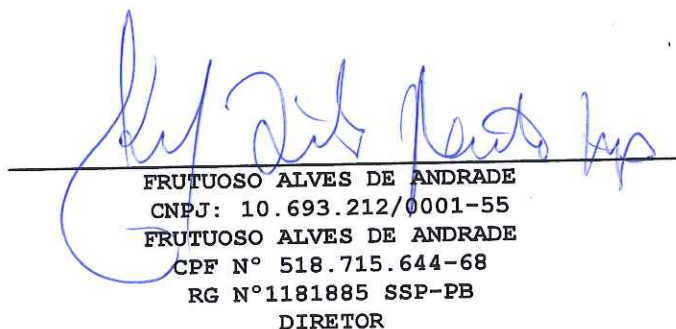 FRUTUOSO ALVES DE ANDRADE
CNPJ: 10.693.212/0001-55
FRUTUOSO ALVES DE ANDRADE
CPF Nº 518.715.644-68
RG Nº1181885 SSP-PB
DIRETOR